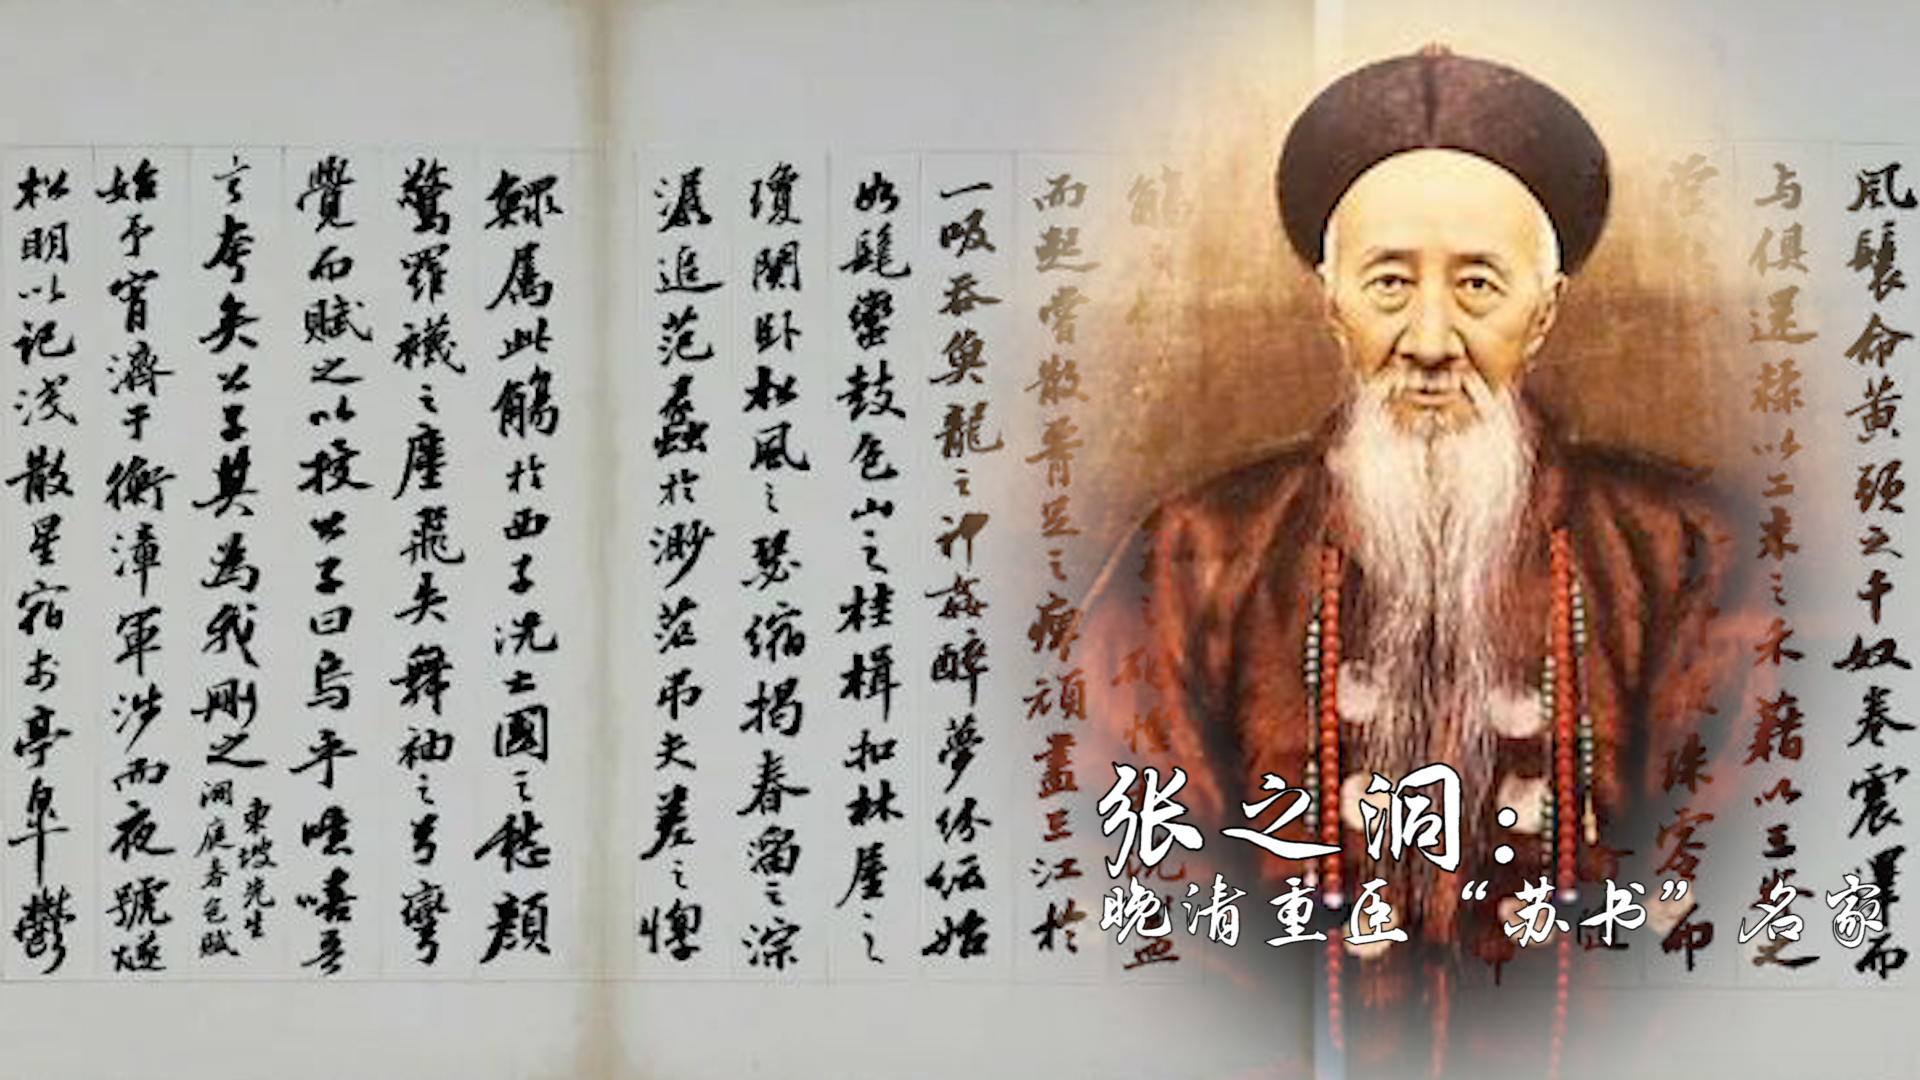 風鬟命黄頭之千奴卷震澤而
与俱還糅以二米之禾藉以三脊之
珠零而
而起嘗散腎足之痹頑盡三江於
一吸吞魚龍之神姦醉夢紛紜始
如髦蠻鼓包山之桂楫扣林屋之
瓊關卧松風之瑟縮揭春溜之淙
潺追范蠡於渺茫吊夫差之惸
鰥屬此觴於西子洗亡國之愁顔
驚羅襪之塵飛失舞袖之弓彎
覺而賦之以授公子曰烏乎噫嘻吾
言夸矣公子其為我刪之
東坡先生
洞庭春色賦
始予宵濟于衡漳軍涉而夜號燧
松明以記淺散星宿於亭皐鬱
张之洞：
晚清重臣“苏书”名家